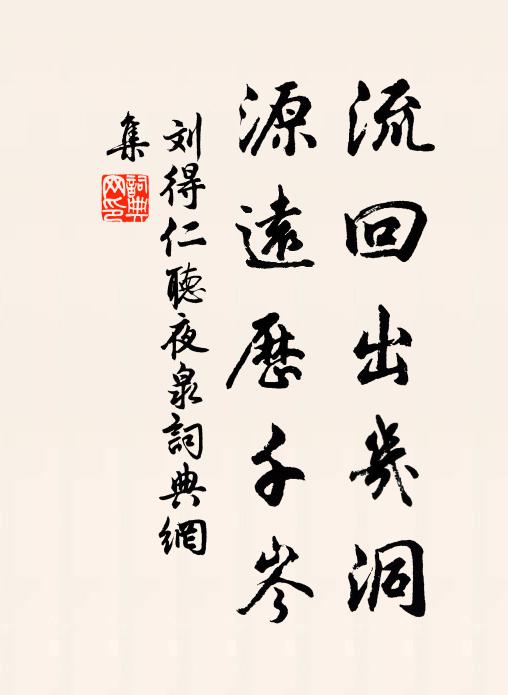 流回出幾洞
源遠歷千岑
刘得仁聽夜泉詞典網
集
詞典網印